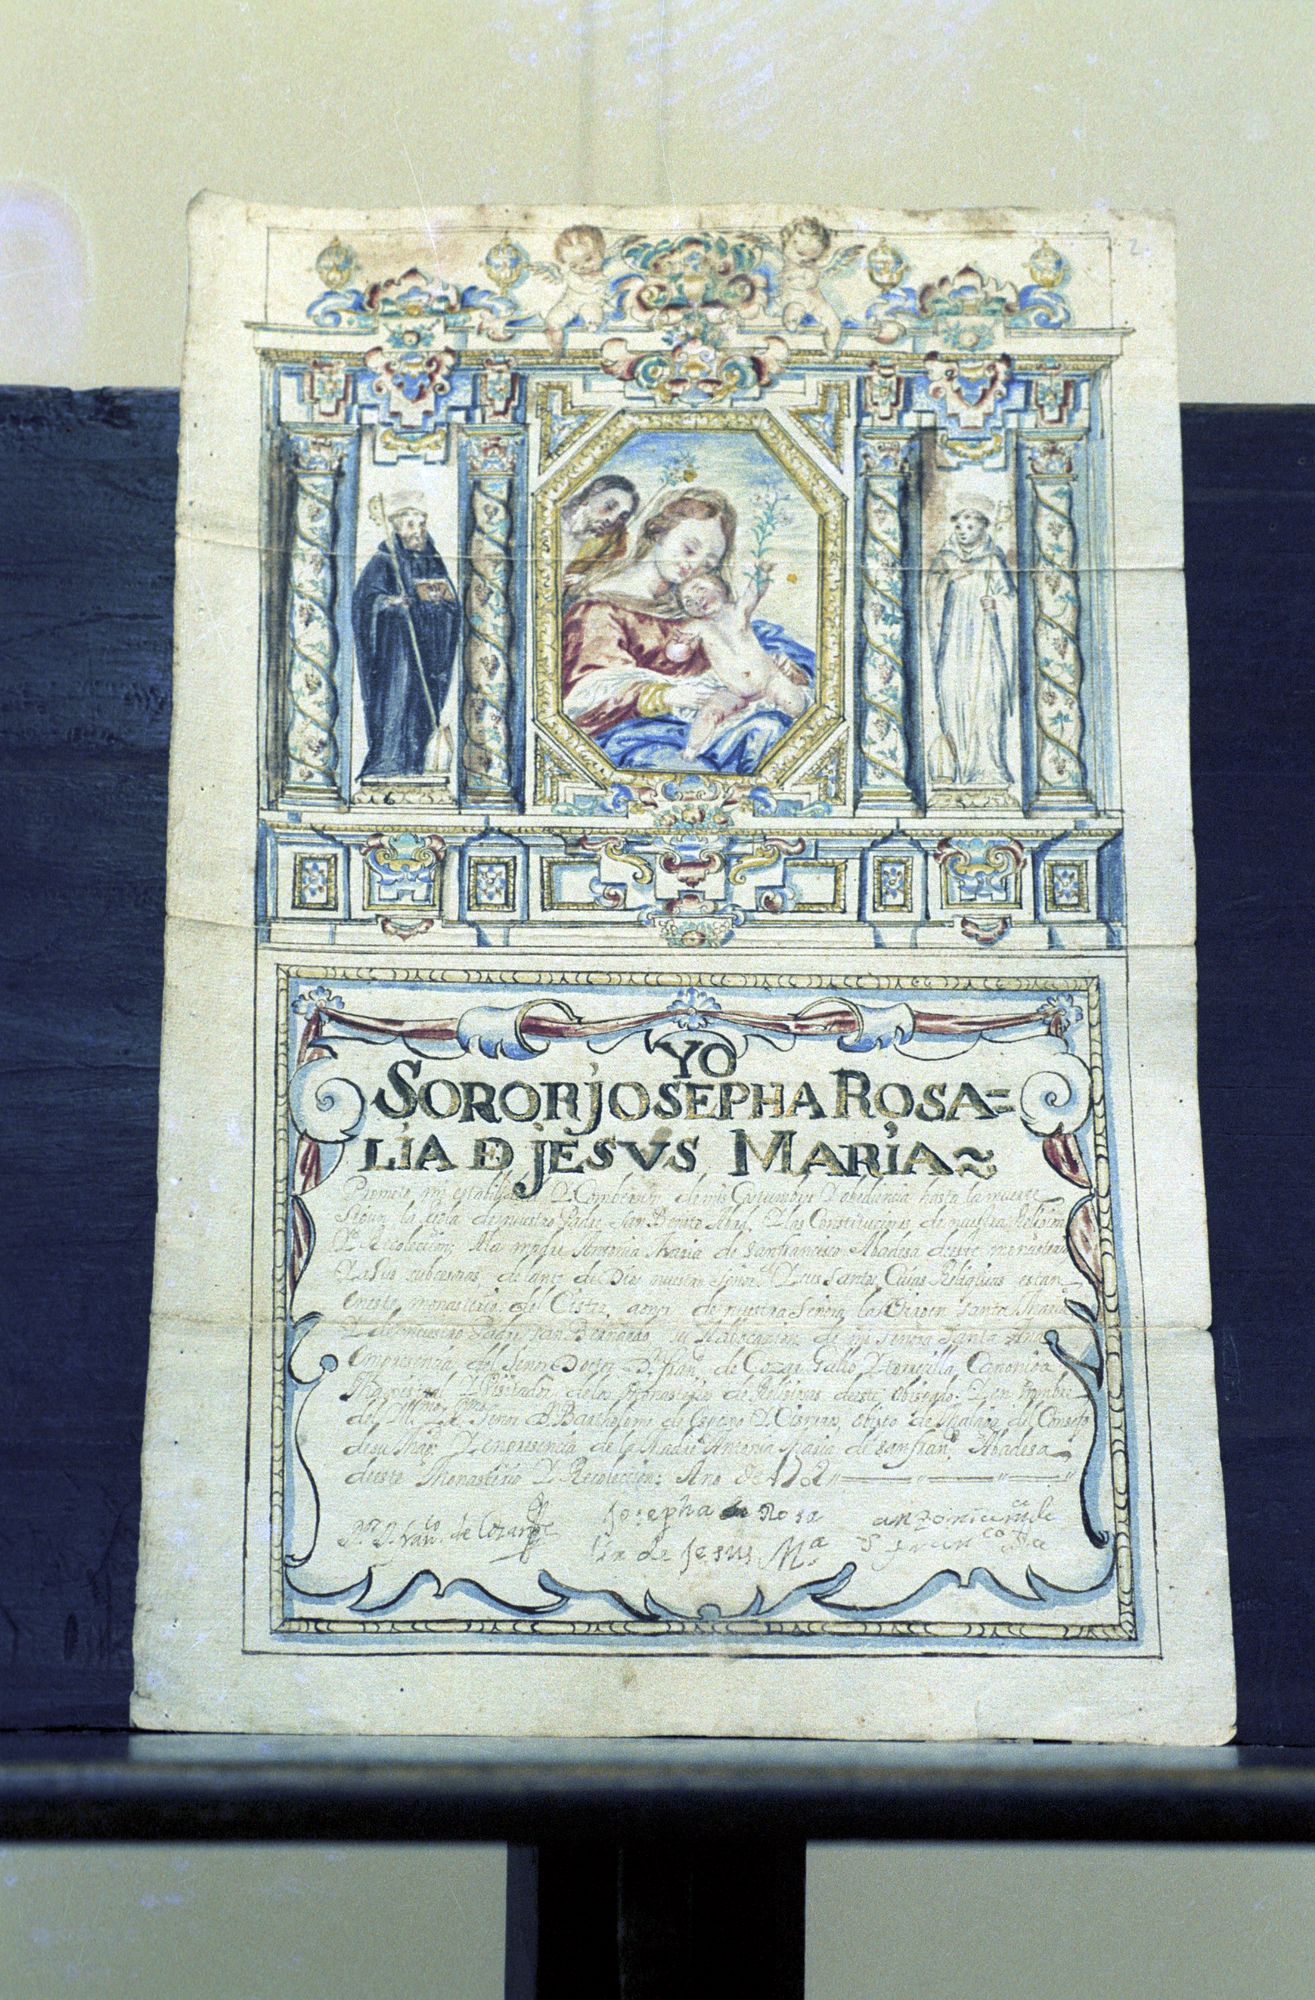 2.
YO
SOROR JOSEPHA ROSA=
LIA Đ JESVS MARIA ~
Prometo mi estabilidad Y Comberçion de mis Costumbres Y obediencia hasta la muerte
Segun la regla de nuestro Padre San Benito Abad, Y las Constituciones de nuestra Religion
Y Recoleccion; A la madre Antonia Maria de San francisco Abadesa deeste monasterio
Y a sus subcesoras delante de Dios nuestro Señor Y sus Santos Cuias Reliquias estan
en este monasterio del Cister, a onor de nuestra Señora la Virgen Santa Maria
Y de nuestro Padre San Bernardo su Adbocacion de mi Señora Santa Ana
En presencia del Señor Doctor D. fran.co de Cozar Gallo Y Canonigo
Magistral Y Visitador de los Monasterios de Religiosas deeste obispado. Y en nombre
del Ill.mo Señor D. Bartholome de Obispo de Malaga del Consejo
de su Mag.d Y en presencia de la Madre Antonia Maria de san fran.co Abadesa
deeste Monasterio Y Recoleccion: Año de
D.or D. Fran.co de Cozar
Josepha Rosa
lia de Jesus M.a
antonia maria de
S fran co